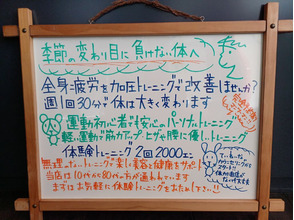 季節の変わり目に負けない体へ
全身疲労を加圧トレーニングで改善しませんか?
週1回30分で体は大きく変わります
運動初心者も安心のパーソナルトレーニング
軽い運動で筋力アップ、ヒザや腰に優しいトレーニング
体験トレーニング 2回2000エン
無理ないトレーニングで楽しく美容と健康をサポート
当店は10代から80代の方が通われています
まずはお気軽に体験トレーニングをお試し下さい!!